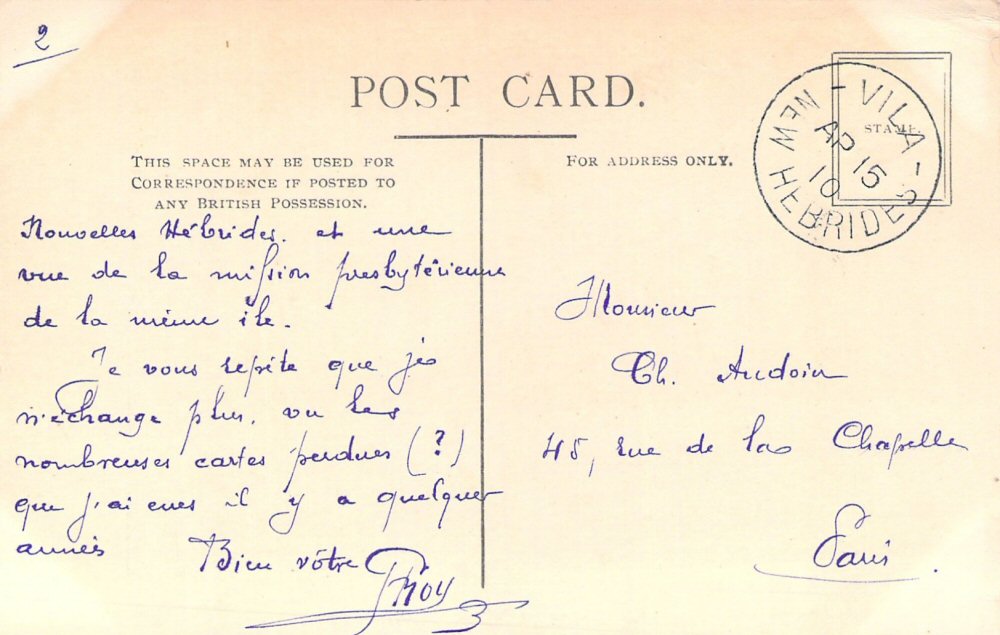 2
POST CARD.
THIS SPACE MAY BE USED FOR
CORRESPONDENCE IF POSTED TO
ANY BRITISH POSSESSION.
FOR ADDRESS ONLY.
STAMP.
VILA
NEW HEBRIDES
AP 15
10
Nouvelles Hébrides. et une
vue de la mission presbytérienne
de la même île.
Je vous répète que je
n'échange plus, vu les
nombreuses cartes perdues (?)
que j'ai eues il y a quelques
années
Bien vôtre
Monsieur
Ch. Audoin
45, rue de la Chapelle
Paris.